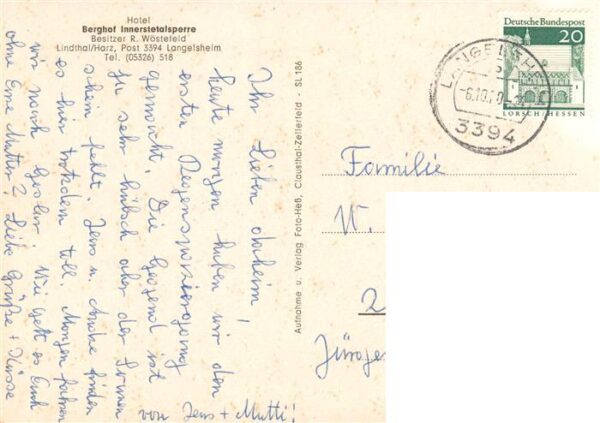 Hotel
Berghof Innerstetalsperre
Besitzer R. Wöstefeld
Lindthal/Harz, Post 3394 Langelsheim
Tel. (05326) 518
Ihr Lieben daheim!
heute morgen haben wir den
ersten Regenspaziergang
gemacht. Die Gegend ist
ja sehr hübsch aber der Sonnen
schein fehlt. Jens u. finden
es hier trotzdem toll. Morgen fahren
wir nach Goslar. Wie geht es Euch
ohne Eure Mutter? Liebe Grüße + Küsse
von Jens + Mutti!
Aufnahme u. Verlag Foto-Heß, Clausthal-Zellerfeld · SL 186
Deutsche Bundespost
20
LORSCH/HESSEN
LANGELSH
-6.10.
3394
Familie
W.
2
Jürge